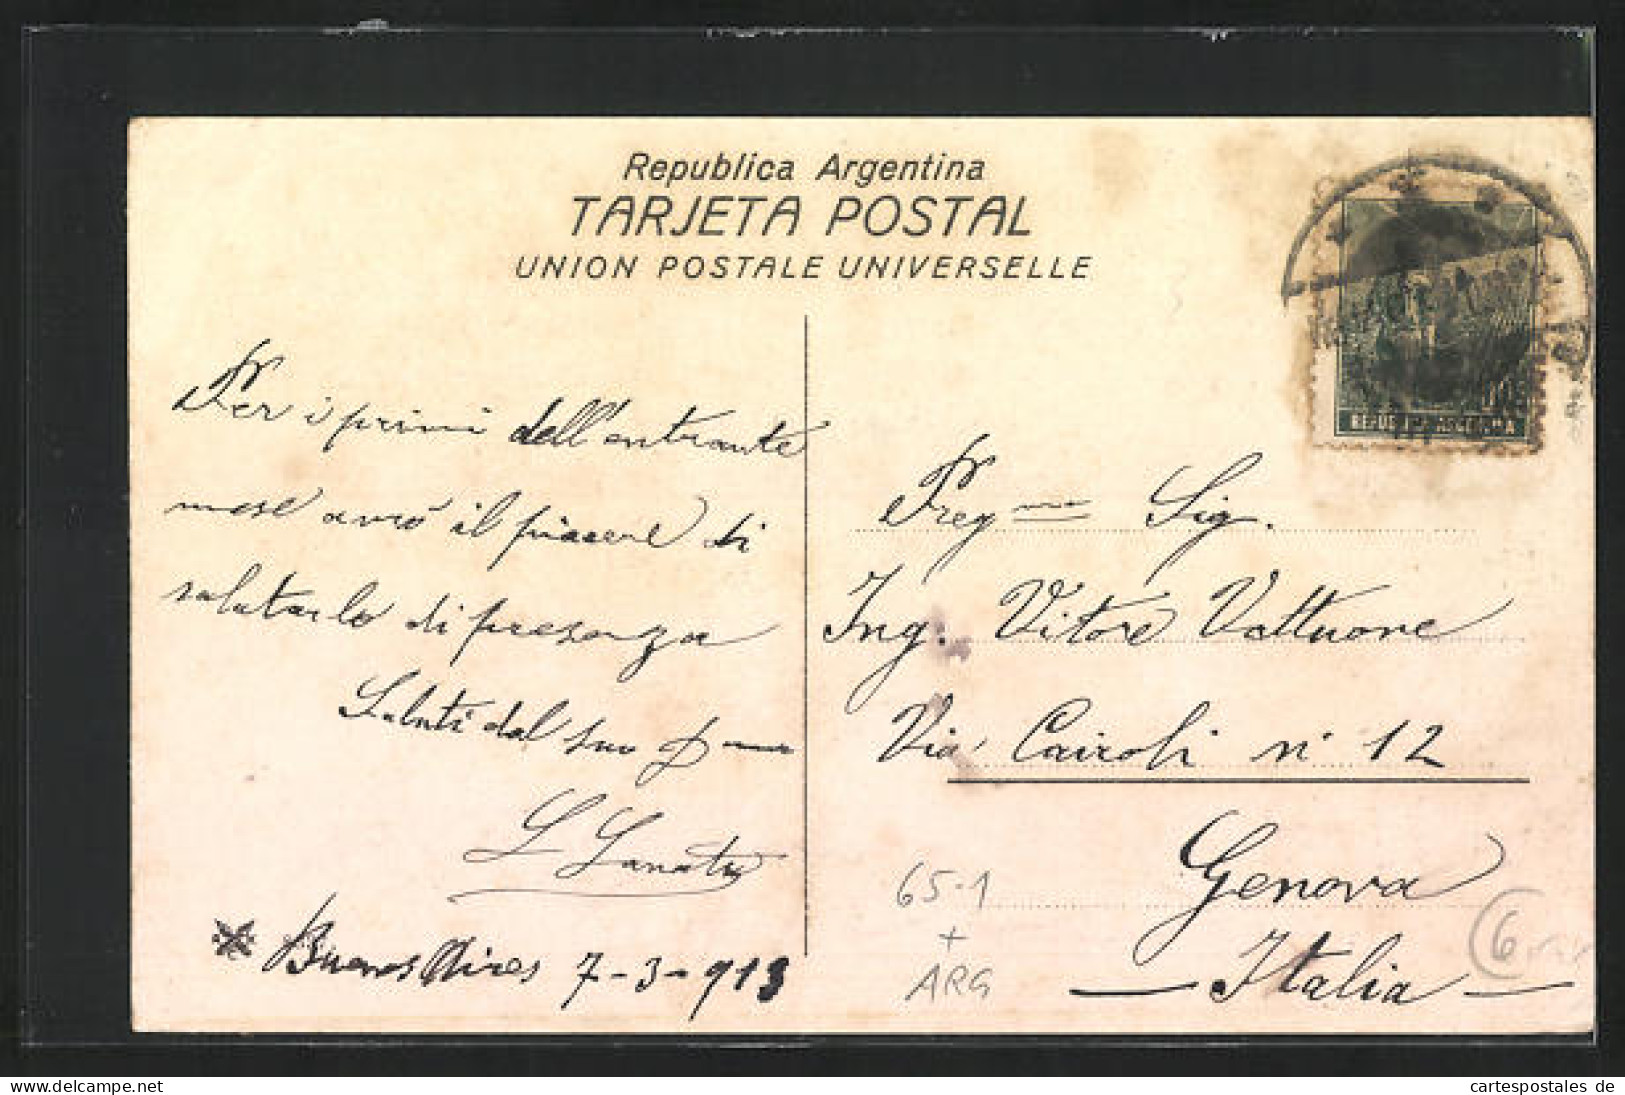 Republica Argentina
TARJETA POSTAL
UNION POSTALE UNIVERSELLE
REPUBLICA ARGENTINA
Per i primi dell'entrante
mese avrò il piacere di
salutarlo di presenza
Saluti dal suo
L
Buenos Aires 7-3-913
Preg mo Sig.
Ing. Vitore Vattuone
Via Cairoli n° 12
Genova
Italia
65-1
+
ARG
6
delcampe.net
cartespostales de